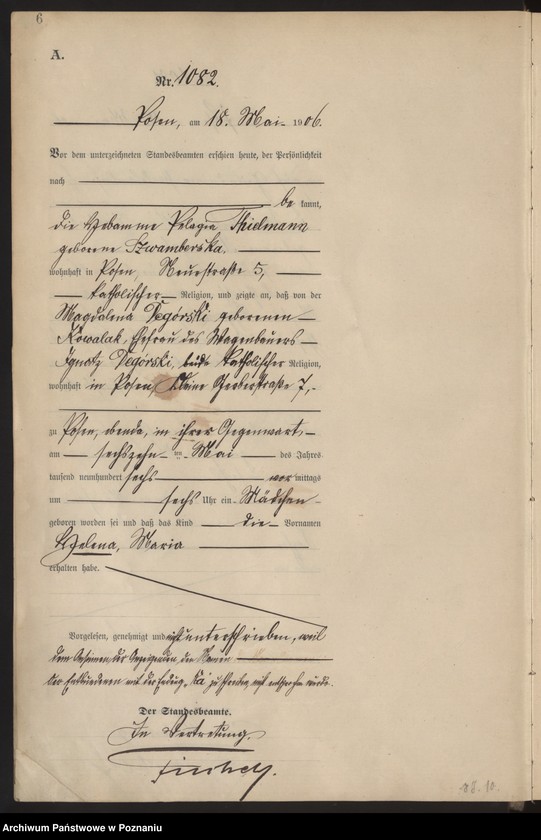 6
A.
Nr. 1082.
Posen, am 18. Mai 1906.
Vor dem unterzeichneten Standesbeamten erschien heute, der Persönlichkeit
nach
be kannt,
die Hebamme Pelagia Thielmann
geborene Szwamberska,
wohnhaft in Posen, Neuestraße 5,
katholischer Religion, und zeigte an, daß von der
Magdalena Degórski geborenen
Kowalak, Ehefrau des Wagenbauers
Ignatz Degórski, beide katholischer Religion,
wohnhaft in Posen, Kleine Gerberstraße 7,
zu Posen, ebenda, in ihrer Gegenwart,
am sechszehn ten Mai des Jahres
tausend neunhundert sechs vor mittags
um sechs Uhr ein Mädchen
geboren worden sei und daß das Kind die Vornamen
Helena, Maria
erhalten habe.
Vorgelesen, genehmigt und nicht unterschrieben, weil
dem der Anzeigenden, den Namen
der mit der ka zu
Der Standesbeamte.
In Vertretung.
88.10.
Archiwum Państwowe w Poznaniu